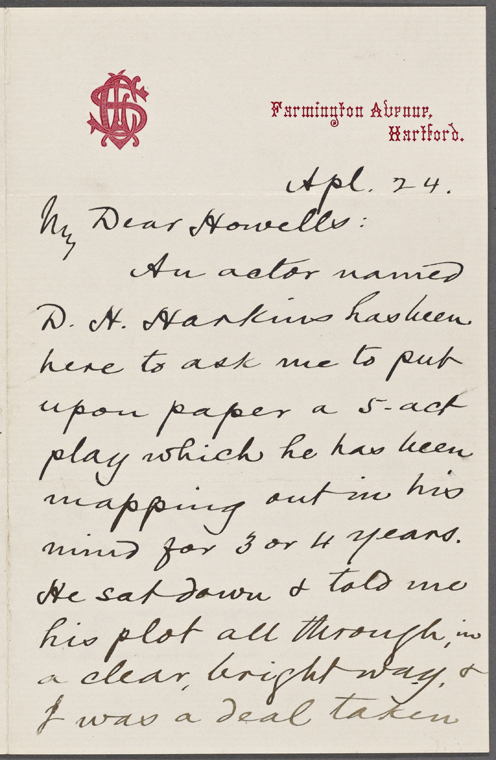 Farmington Avenue,
Hartford.
Apl. 24.
My Dear Howells:
An actor named
D. H. Harkins has been
here to ask me to put
upon paper a 5-act
play which he has been
mapping out in his
mind for 3 or 4 years.
He sat down & told me
his plot all through, in
a clear, bright way, &
I was a deal taken